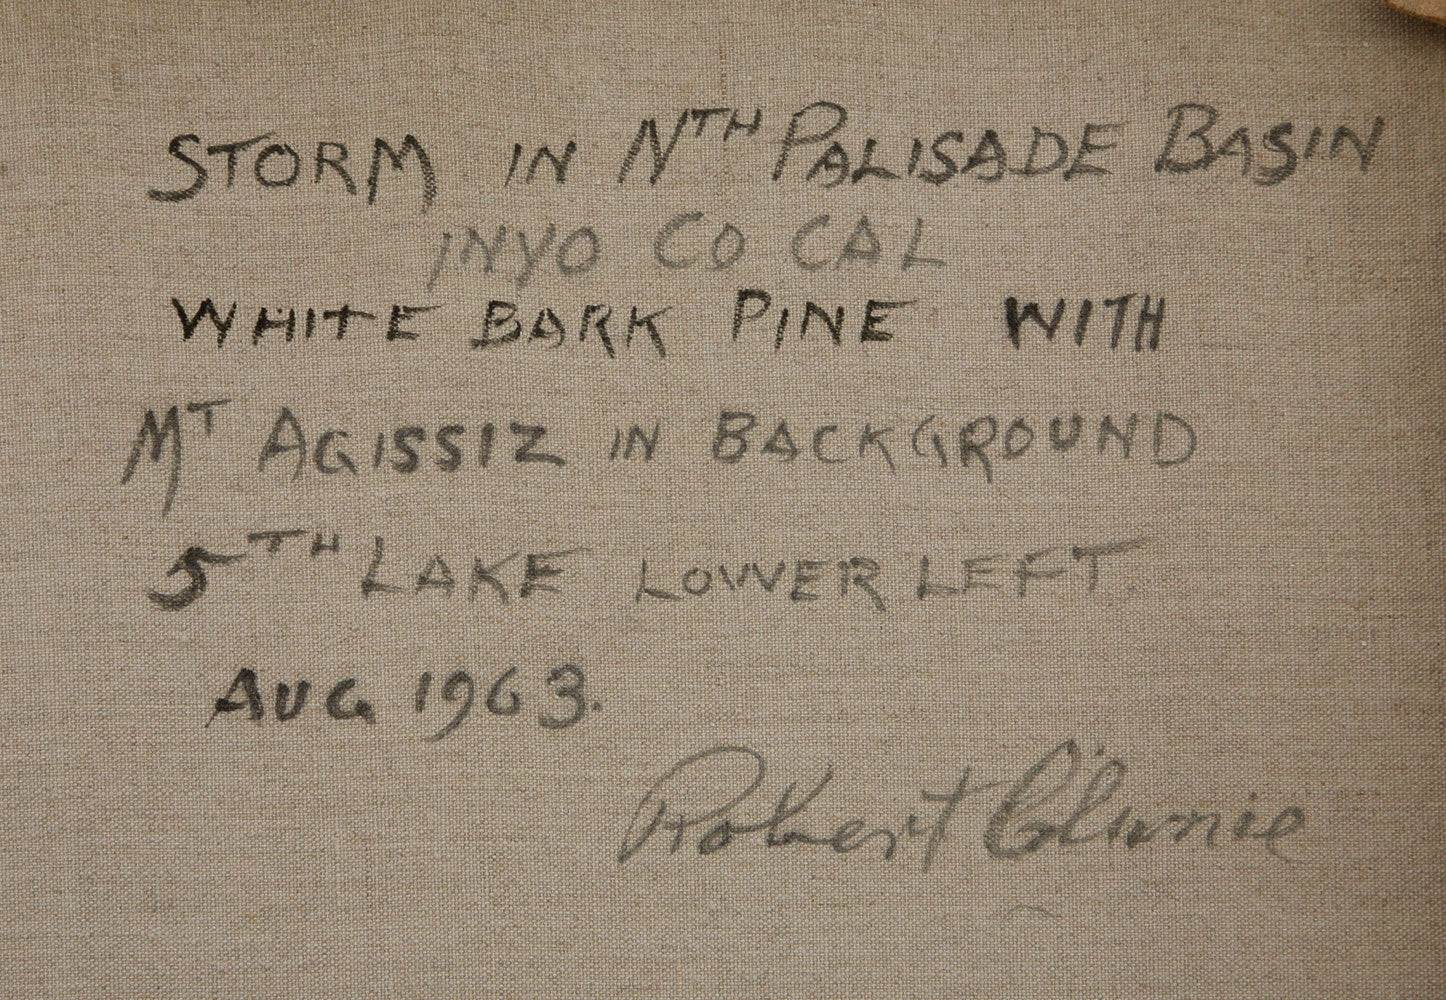 STORM IN NTH PALISADE BASIN
INYO CO CAL
WHITE BARK PINE WITH
MT AGISSIZ IN BACKGROUND
5TH LAKE LOWER LEFT.
AUG 1963.
Robert Clunie